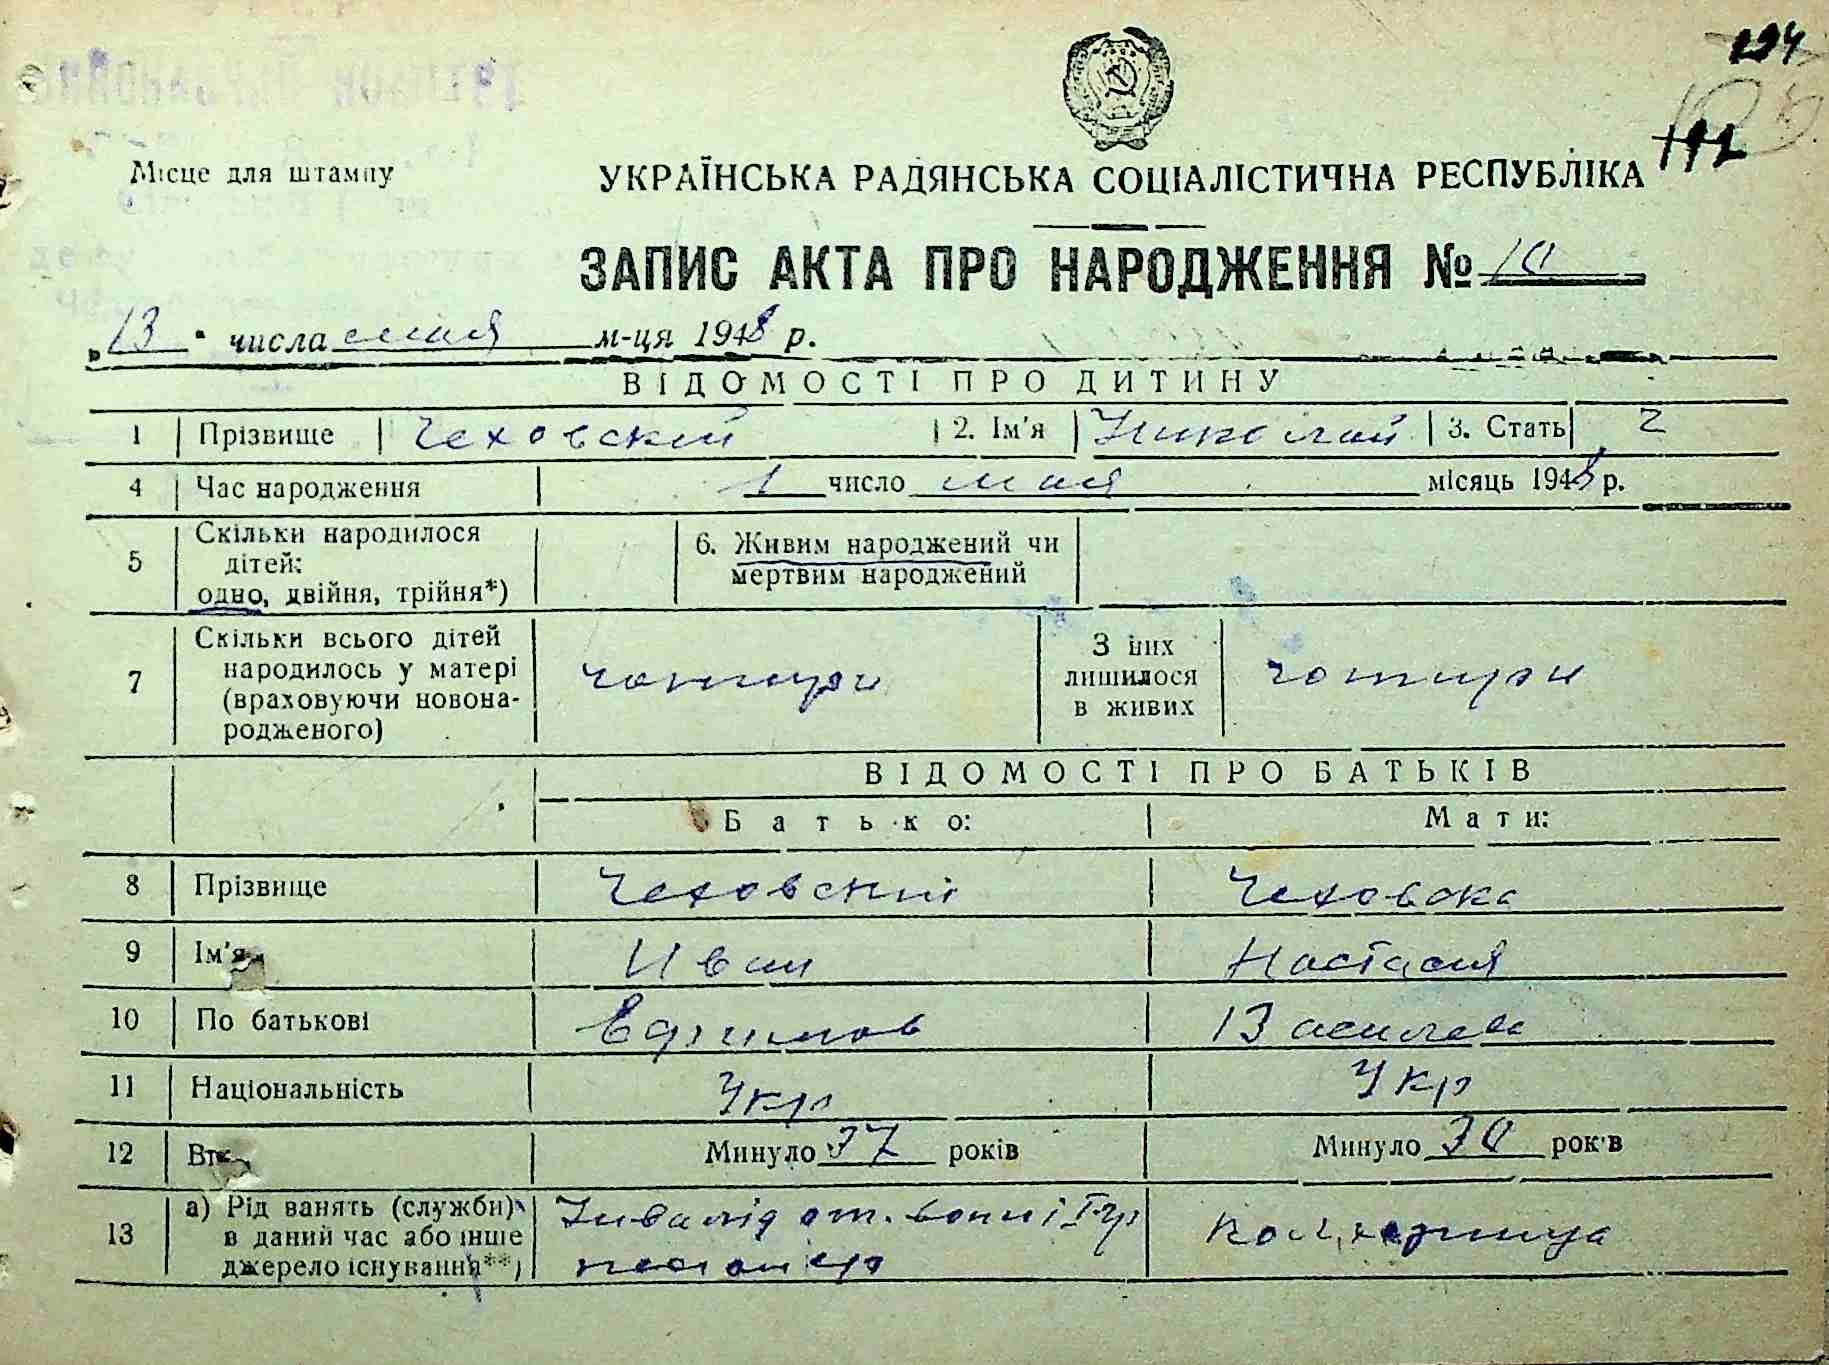 194
192
Місце для штампу
УКРАЇНСЬКА РАДЯНСЬКА СОЦІАЛІСТИЧНА РЕСПУБЛІКА
ЗАПИС АКТА ПРО НАРОДЖЕННЯ № 10
„13" числа мая м-ця 1948 р.
ВІДОМОСТІ ПРО ДИТИНУ
1 Прізвище Чеховский 2. Ім'я Николай 3. Стать Ч
4 Час народження 1 число мая місяць 1948 р.
5 Скільки народилося дітей: одно, двійня, трійня*) 6. Живим народжений чи мертвим народжений
7 Скільки всього дітей народилось у матері (враховуючи новонародженого) чотири З них лишилося в живих чотири
ВІДОМОСТІ ПРО БАТЬКІВ
Батько: Мати:
8 Прізвище Чеховский Чеховска
9 Ім'я Иван Настасия
10 По батькові Ефимов Василева
11 Національність Укр Укр
12 Вік Минуло 37 років Минуло 30 років
13 а) Рід занять (службн) в даний час або інше джерело існування**) Інвалід от. вопни І гр Колхозница